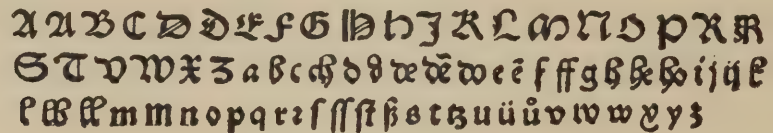 A A B C D D E F G H H J K L M N O P R R
S T V W X Z a b c ch d d de dē do e ē f ff g h he ho i j ij k
l lb ll m m n o p q r ꝛ ſ ſſ ſt ß s t tz u ü ů v w w x y z